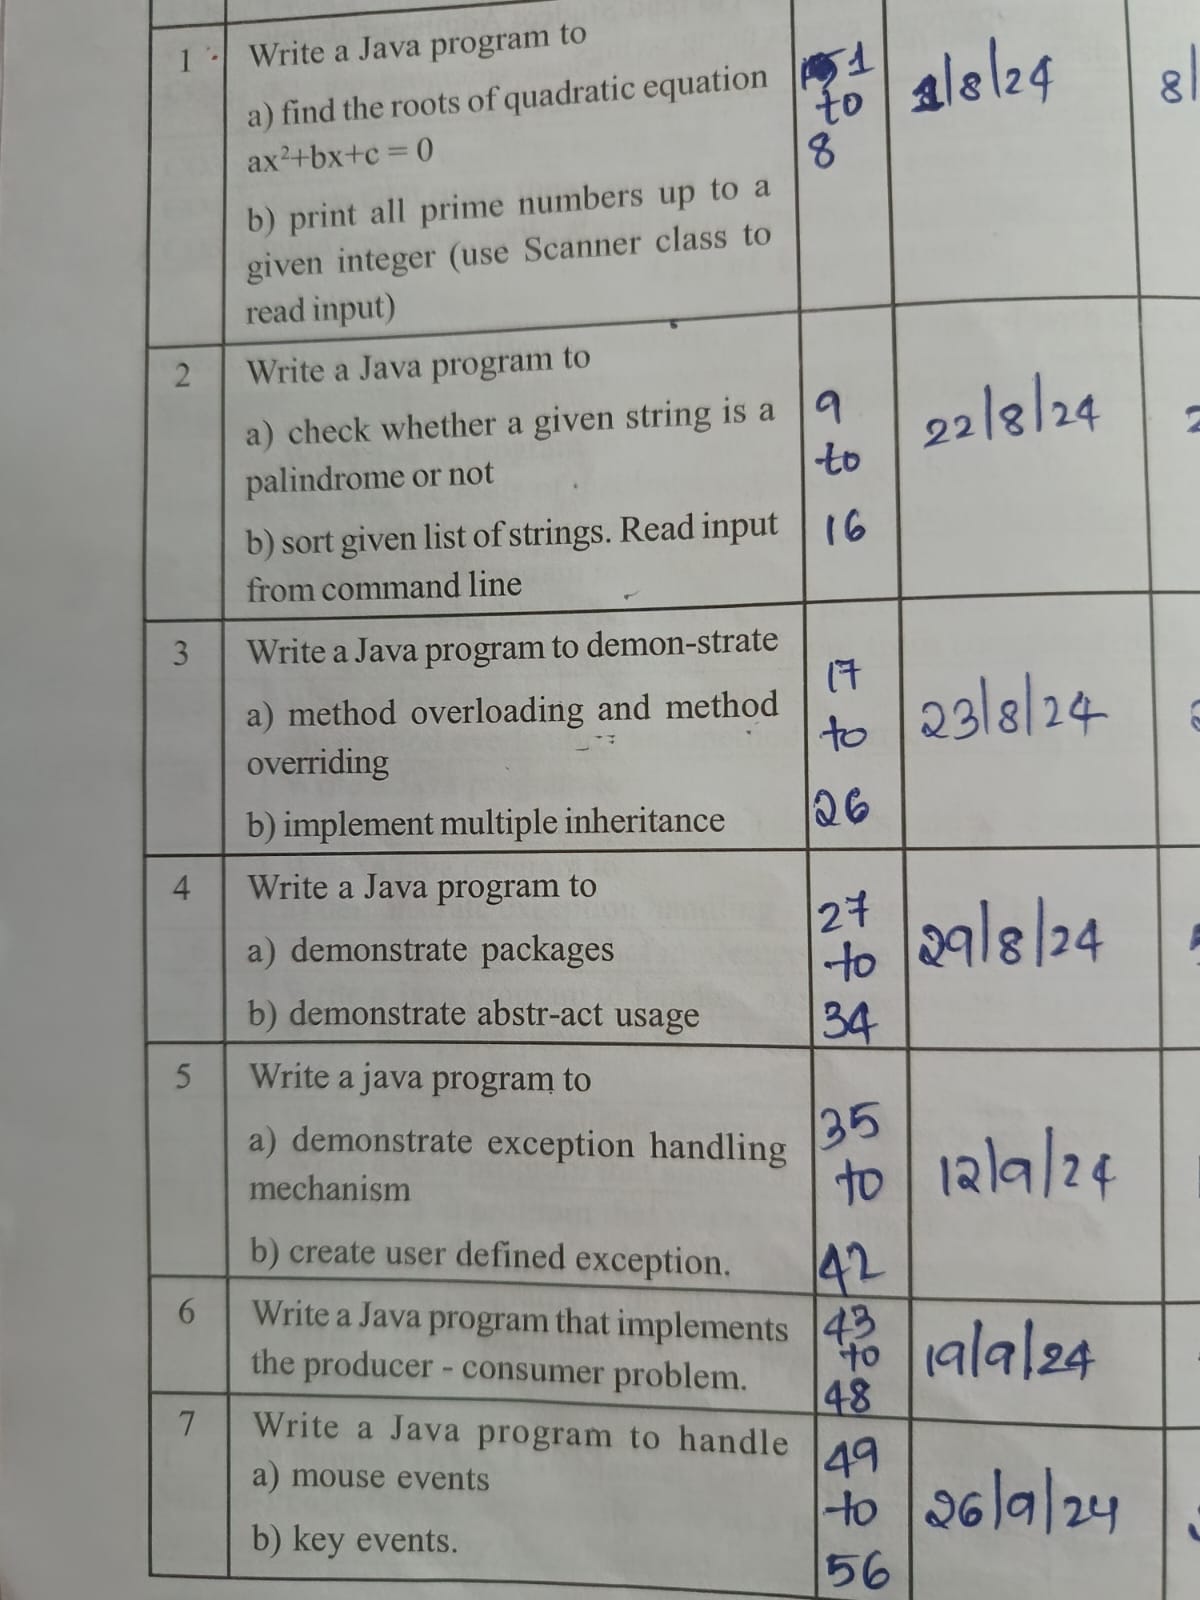 1
Write a Java program to
a) find the roots of quadratic equation
ax²+bx+c = 0
b) print all prime numbers up to a
given integer (use Scanner class to
read input)
1
to
8
1/8/24
8/
2
Write a Java program to
a) check whether a given string is a
palindrome or not
b) sort given list of strings. Read input
from command line
9
to
16
22/8/24
3
Write a Java program to demon-strate
a) method overloading and method
overriding
b) implement multiple inheritance
17
to
26
23/8/24
4
Write a Java program to
a) demonstrate packages
b) demonstrate abstr-act usage
27
to
34
29/8/24
5
Write a java program to
a) demonstrate exception handling
mechanism
b) create user defined exception.
35
to
42
12/9/24
6
Write a Java program that implements
the producer - consumer problem.
43
to
48
19/9/24
7
Write a Java program to handle
a) mouse events
b) key events.
49
to
56
26/9/24